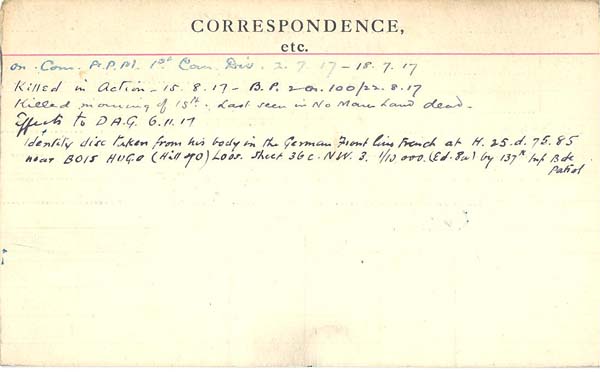 CORRESPONDENCE,
etc.
on Com. A.P.M. 1st Can. Div. 2.7.17 – 18.7.17
Killed in Action – 15.8.17 – B.P. 2 on. 100/22.8.17
Killed morning of 15th. Last seen in No Mans Land dead.
Effects to D.A.G. 6.11.17
Identity disc taken from his body in the German Front Line trench at H.25.d.75.85
near BOIS HUGO (Hill 70) Loos. Sheet 36c. N.W. 3. 1/10 000. (Ed. 8a) by 137th Inf Bde
Patrol